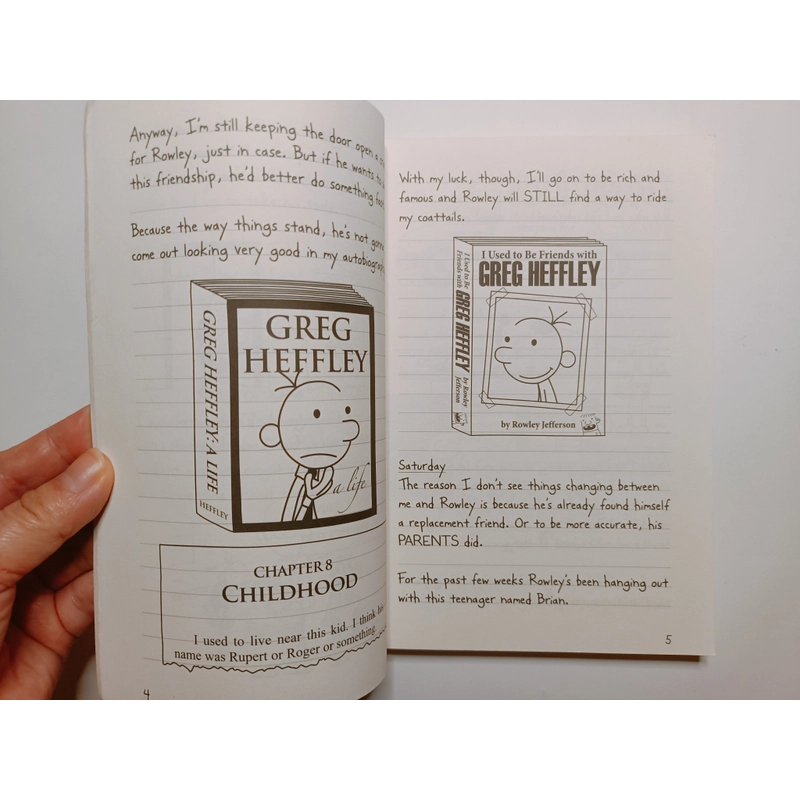 Anyway, I'm still keeping the door open a
for Rowley, just in case. But if he wants to
this friendship, he'd better do something fast
Because the way things stand, he's not gonna
come out looking very good in my autobiography
GREG HEFFLEY: A LIFE
HEFFLEY
GREG
HEFFLEY
a life
CHAPTER 8
CHILDHOOD
I used to live near this kid. I think his
name was Rupert or Roger or something.
4
With my luck, though, I'll go on to be rich and
famous and Rowley will STILL find a way to ride
my coattails.
I Used to Be
Friends with
GREG HEFFLEY
by Rowley
Jefferson
I Used to Be Friends with
GREG HEFFLEY
by Rowley Jefferson
Saturday
The reason I don't see things changing between
me and Rowley is because he's already found himself
a replacement friend. Or to be more accurate, his
PARENTS did.
For the past few weeks Rowley's been hanging out
with this teenager named Brian.
5